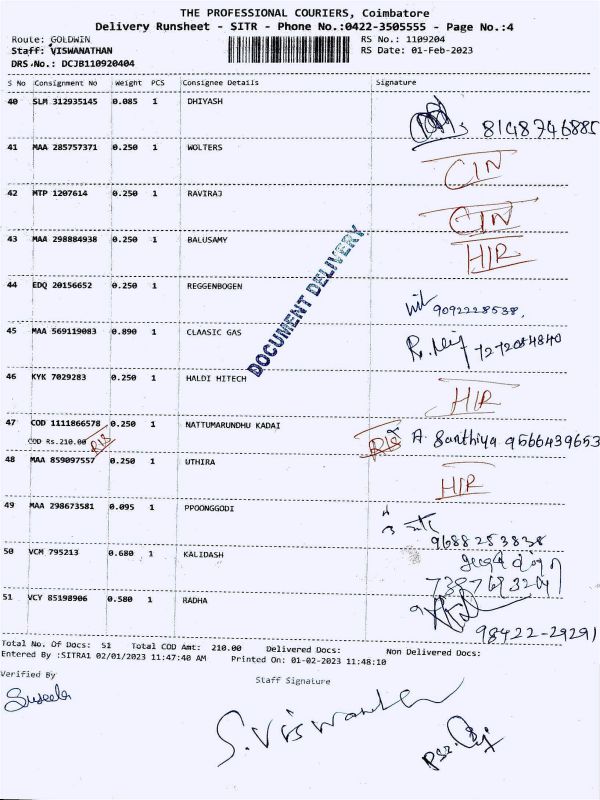 THE PROFESSIONAL COURIERS, Coimbatore
Delivery Runsheet - SITR - Phone No.:0422-3505555 - Page No.:4
Route: GOLDWIN RS No.: 1109204
Staff: VISWANATHAN RS Date: 01-Feb-2023
DRS No.: DCJB110920404
S No Consignment No Weight PCS Consignee Details Signature
40 SLM 312935145 0.085 1 DHIYASH 8148746885
41 MAA 285757371 0.250 1 WOLTERS CIN
42 MTP 1207614 0.250 1 RAVIRAJ CIN
43 MAA 298884938 0.250 1 BALUSAMY HIR
44 EDQ 20156652 0.250 1 REGGENBOGEN 9092228538.
45 MAA 569119083 0.890 1 CLAASIC GAS
46 KYK 7029283 0.250 1 HALDI HITECH HIR
47 COD 1111866578 0.250 1 NATTUMARUNDHU KADAI A. Santhiya 9566439653
COD Rs.210.00
48 MAA 859097557 0.250 1 UTHIRA HIR
49 MAA 298673581 0.095 1 PPOONGGODI
9688253838
50 VCM 795213 0.680 1 KALIDASH
51 VCY 85198906 0.580 1 RADHA
98422-29291
DOCUMENT DELIVERY
Total No. Of Docs: 51 Total COD Amt: 210.00 Delivered Docs: Non Delivered Docs:
Entered By :SITRA1 02/01/2023 11:47:40 AM Printed On: 01-02-2023 11:48:10
Verified By Staff Signature
Suseela
S. Viswanathan